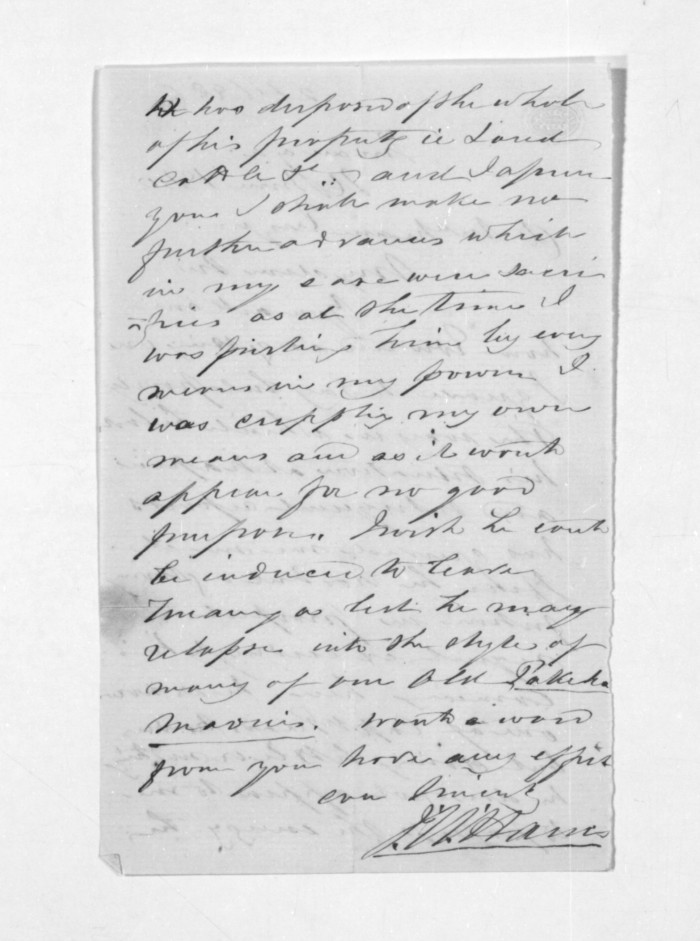 He has disposed of the whole
of his property ie Land
Cattle &c :: and I assure
you I shall make no
further advances which
in my case were sacri
fices as at the time I
was pushing him by every
means in my power I
was crippling my own
means and as it would
appear for no good
purpose. I wish he could
be induced to leave
as lest he may
relapse into the style of
many of our Old Pakeha
Maories. Would a word
from you have any effect